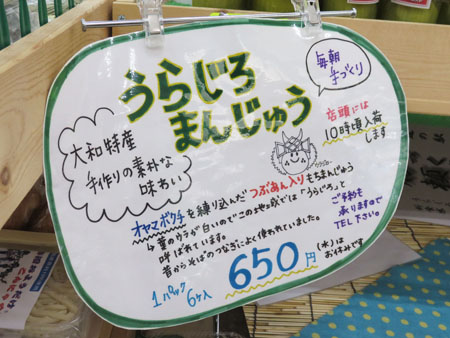 毎朝
手づくり
うらじろ
まんじゅう
大和特産
手作りの素朴な
味わい
店頭には
10時頃入荷
します
オヤマボクチを練り込んだつぶあん入りもちまんじゅう
↳葉のウラが白いのでこの土地域では"うらじろ"と
呼ばれています。
昔からそばのつなぎによく使われていました。
ご予約も
承りますので
TEL下さい。
1パック
6ケ入
650円
(水)は
お休みです